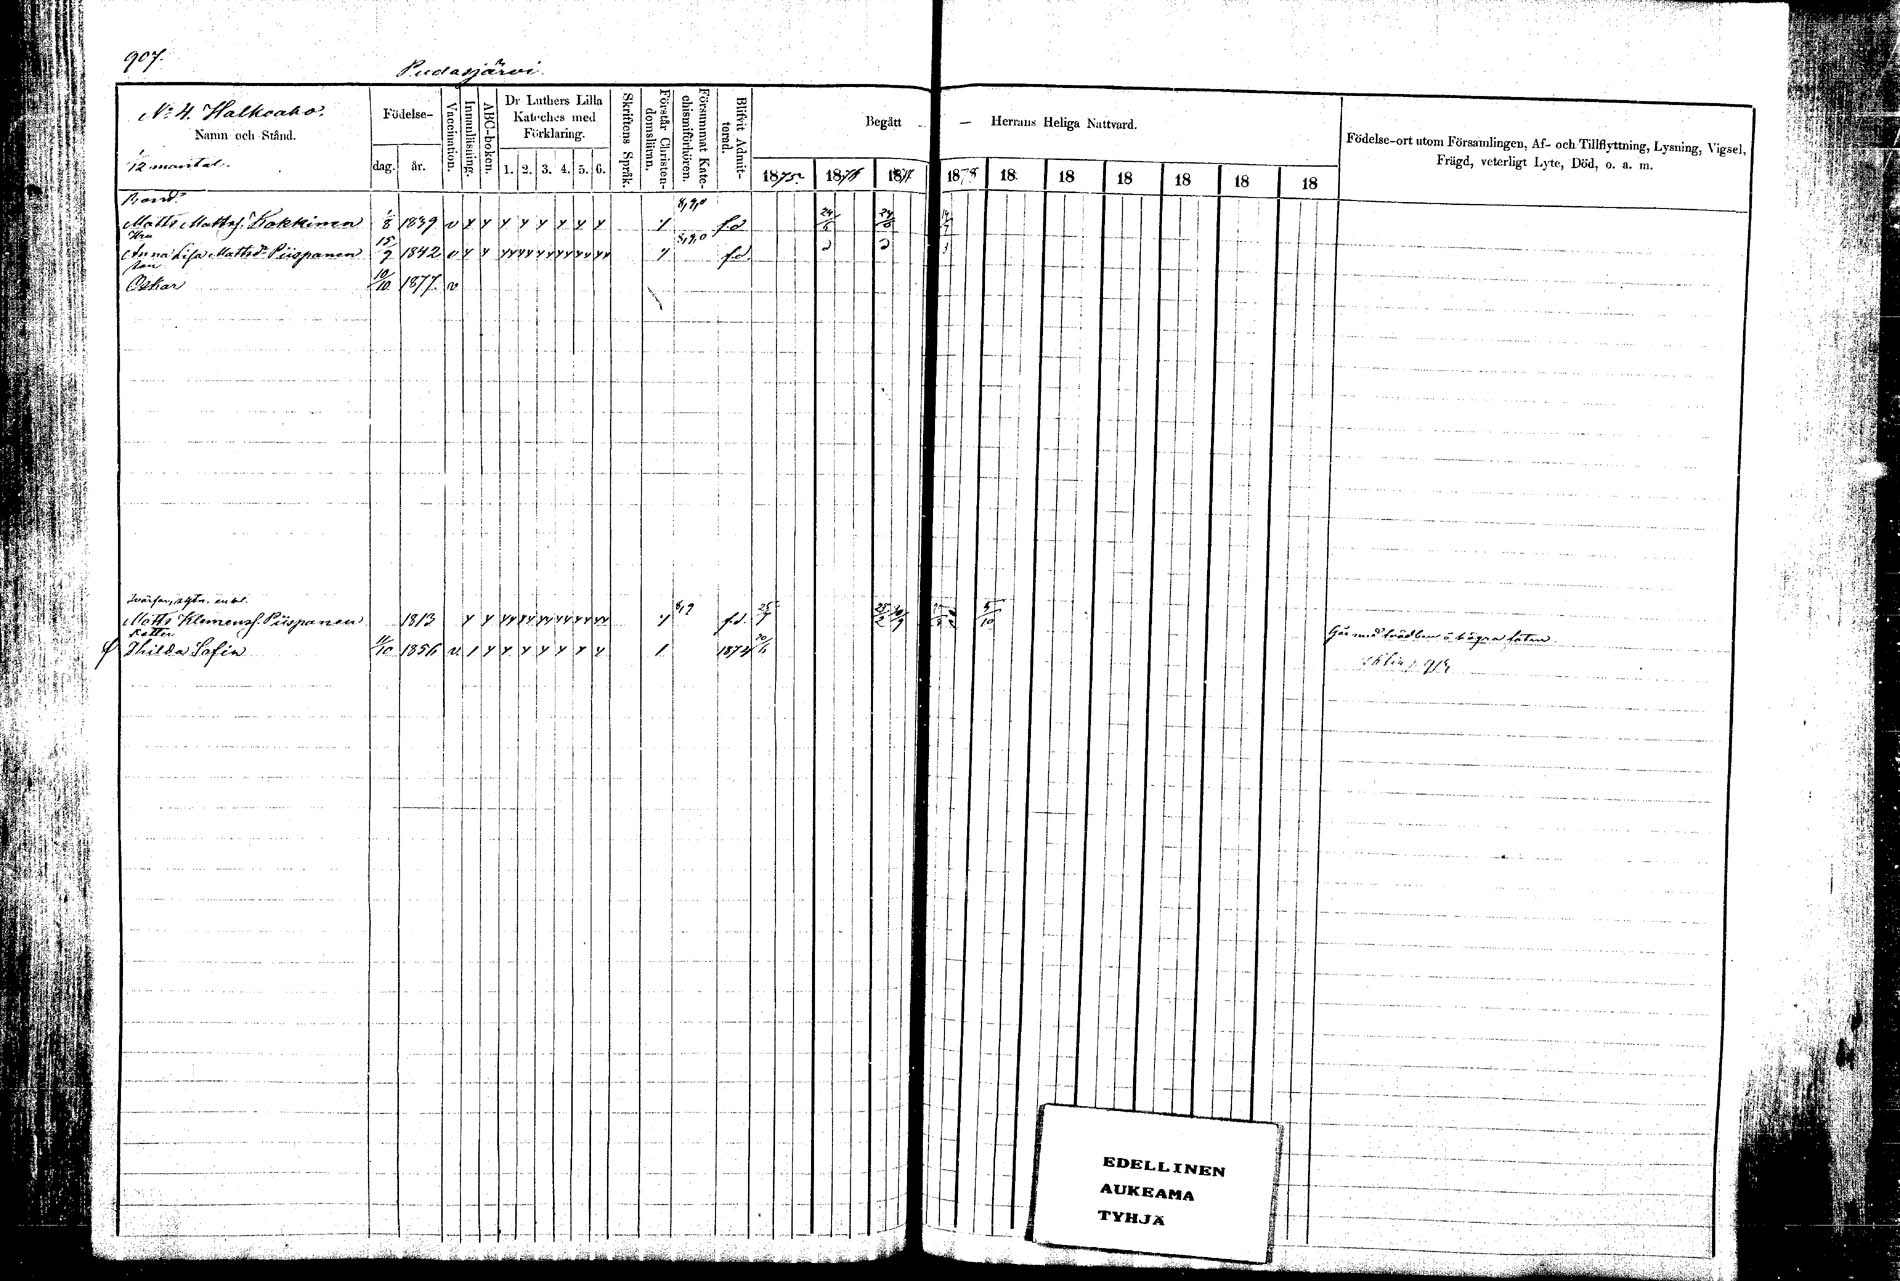 907.
Pudasjärvi.
No 4. Halkoaho.
Namn och Stånd.
1/12 mantal.
Födelse-
dag.
år.
Vaccination.
Innanläsning.
ABC-boken.
Dr Luthers Lilla
Kateches med
Förklaring.
1. 2. 3. 4. 5. 6.
Skriftens Språk.
Förstår Christen-
domsläran.
Försummat Kate-
chismiförhören.
Blifvit Admit-
terad.
Begått — Herrans Heliga Nattvard.
1875. 1876 1877 1878 18 18 18 18 18 18
Födelse-ort utom Församlingen, Af- och Tillflyttning, Lysning, Vigsel,
Frägd, veterligt Lyte, Död, o. a. m.
Bond.
8,9,0
Matts Mattss. Kokkinen 1/8 1839 v y y y y y y y y y f.d 24/6 24/6 14/7
Hru 8,9,0
Anna Lisa Mattsd. Piispanen 15/9 1842 v y y yy yy yy yy yy yy y f.d.
Son
Oskar 10/10 1877. v
Matts Klemenss. Piispanen 1813 y y yy yy yy yy yy yy y 8,9 f.d. 25/7 25/2 5/10
Dotter
Thilda Sofia 11/10 1856 v 1 y y y y y y y 1 1874 20/6
Går med träben å högra foten
918
EDELLINEN
AUKEAMA
TYHJÄ